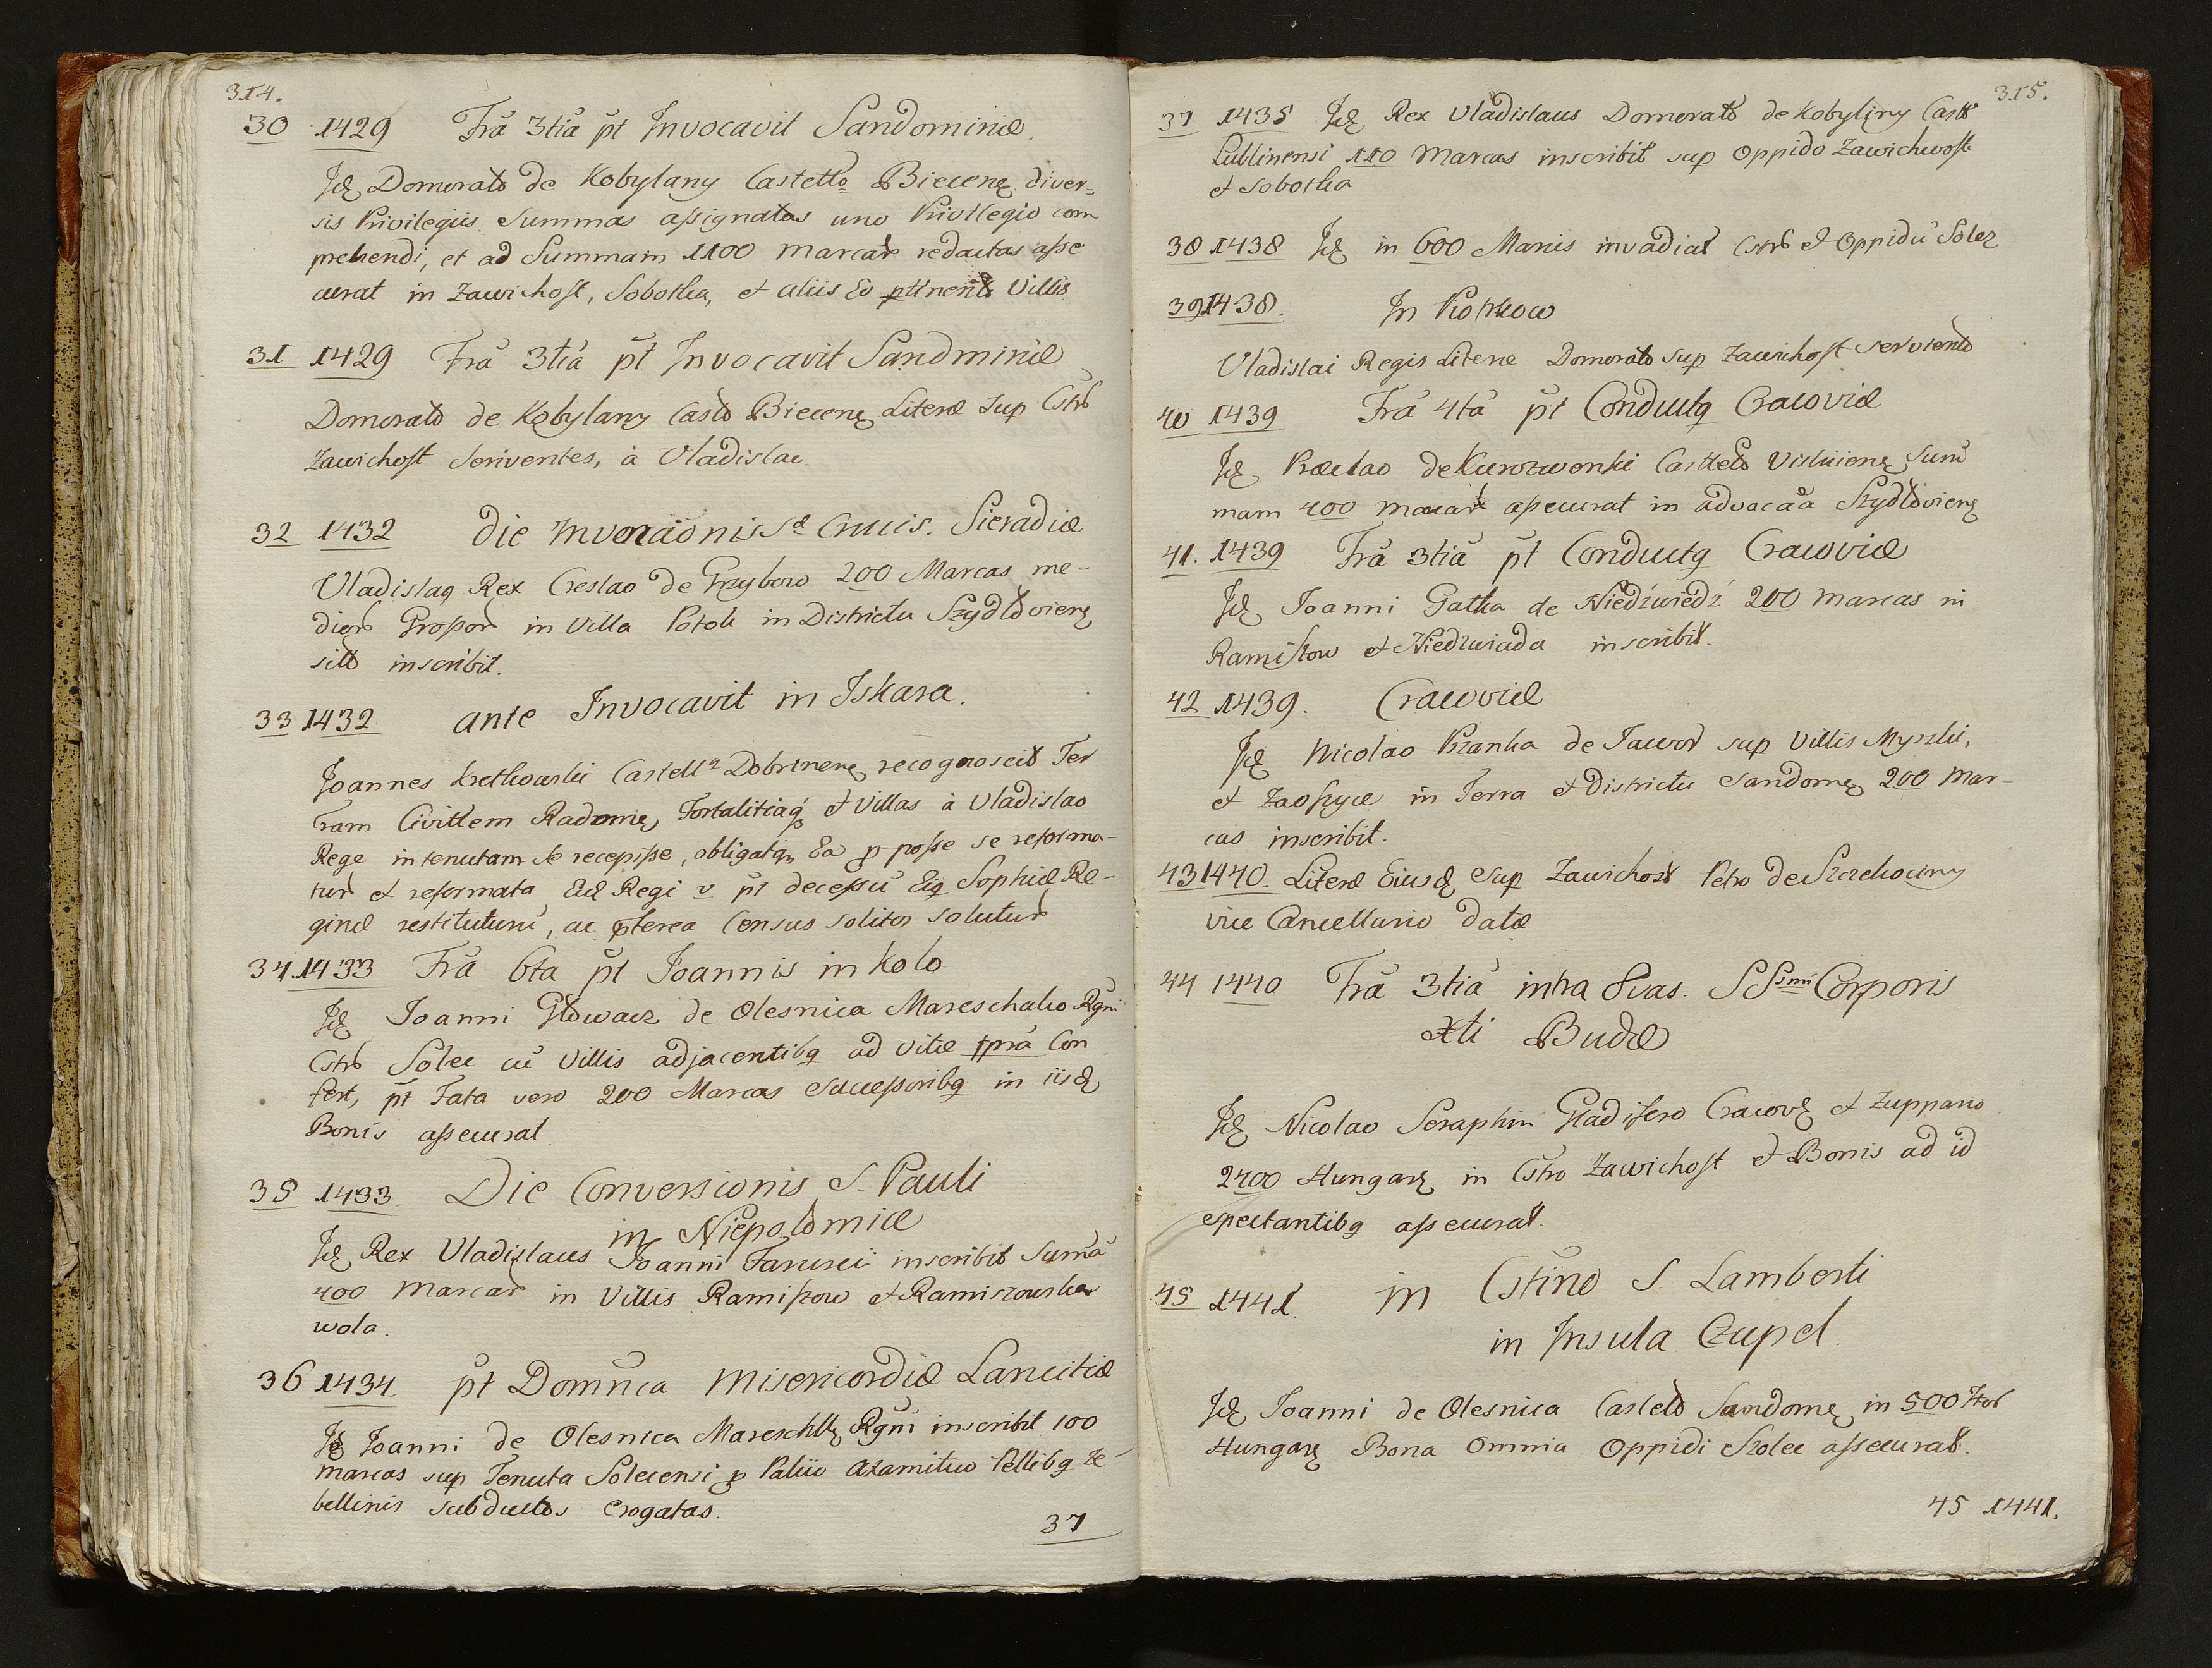 314.
30 1429 Fra 3tia pt Invocavit Sandomiriæ.
Id Domorato de Kobylany Castello Biecenę diver=
sis Privilegiis Summas assignatas uno Privilegio com
prehendi, et ad Summam 1100 marcar redactas asse
curat in Zawichost, Sobotka, et aliis Eo ptinent Villis
31 1429 Fra 3tia pt Invocavit Sandmiriæ
Domorato de Kobylany Casto Biecenę Literæ Sup Cstro
Zawichost servientes, à Vladislao
32 1432 Die Invenãonis Sæ Crucis. Sieradiæ
Vladislaq Rex Ceslao de Grzybow 200 Marcas me-
dior Grossor in Villa Potok in Districtu Szydłovienę
sito inscribit.
33 1432 ante Invocavit in Iskara.
Joannes Kretkowski Castellq Dobrinenę recognoscit Ter
ram Civitlem Radomię, Fortalitiaq et Villas à Vladislao
Rege in tenutam se recepisse, obligatq Ea p posse se reforma-
tur et reformata Eid Regi v pt decessũ Eiq Sophiæ Re-
ginæ restituturũ, ac pterea Census solitos solutur
34. 1433 Fra 6ta pt Joannis in Kolo
Id Joanni Głowacz de Olesnica Mareschalco Rgni
Cstro Solec cũ Villis adjacentibq ad vitæ tpra Con
fert, pt Fata vero 200 Marcas Successoribq in iisd
Bonis assecurat.
35 1433. Die Conversionis S. Pauli
in Niepołomiæ
Id Rex Vladislaus Joanni Farurei inscribit Sumã
400 marcar in Villis Ramiszow et Ramiszowska
wola.
36 1434 pt Domnca Misericordiæ Lancitiæ
Id Joanni de Olesnica Mareschllę Rgni inscribit 100
marcas sup Tenuta Solecensi p Palio axamitico Pellibq Ze-
bellinis subductos erogatas.
37
315.
37 1435 Id Rex Vladislaus Domorato de Kobyliny Casto
Lublinensi 110 Marcas inscribit sup Oppido Zawichwost
et Sobotka
38 1438 Id in 600 Marcis invadiat Cstro et Oppidũ Solez
39 1438. In Piotrkow
Vladislai Regis Literæ Domorato Sup Zawichost serviento
40 1439 Fra 4ta pt Conductq Cracoviæ
Id Præclao de Kurozwenki Castello Vislicienę Sum
mam 400 marcar assecurat in advocaãa Szydłovienę
41. 1439 Fra 3tia pt Conductq Cracoviæ
Id Joanni Gatka de Niedźwiedź 200 marcas in
Ramiszow et Niedzwiada inscribit.
42 1439. Cracoviæ
Id Nicolao Pianka de Jawor sup Villis Myszki,
et Zaoszyce in Terra et Districtu Sandomę 200 Mar-
cas inscribit.
43 1440. Literæ Eiusd Sup Zawichost Petro de Szczekociny
vice Cancellario datæ
44 1440 Fra 3tia intra 8vas. SSsmi Corporis
Xti Budæ
Id Nicolao Seraphin Gladifero Cracovę et Zuppario
2400 Hungarę in Cstro Zawichost et Bonis ad id
spectantibq assecurat.
45 1441. in Cstino S. Lamberti
in Insula Czepel.
Id Joanni de Olesnica Castelo Sandomę in 500 flor
Hungarę Bona Omnia Oppidi Szolec assecurat.
45 1441.